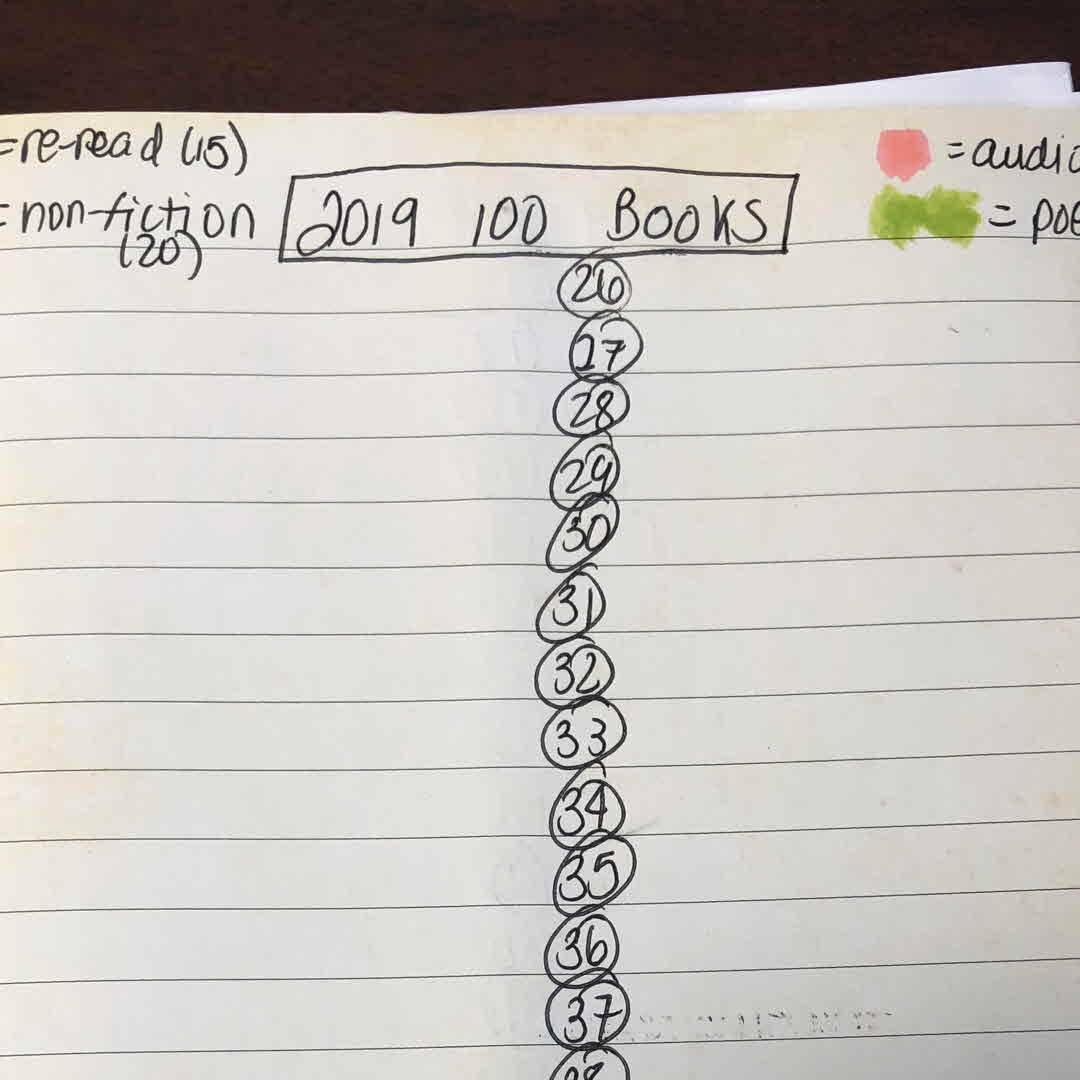 =re-read (15)
= non-fiction
(20)
2019 100 BOOKS
= audio
= poe
26
27
28
29
30
31
32
33
34
35
36
37
38